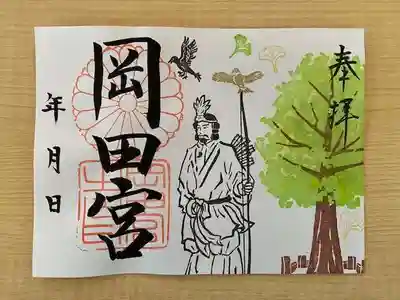 奉拝
岡田宮
年月日